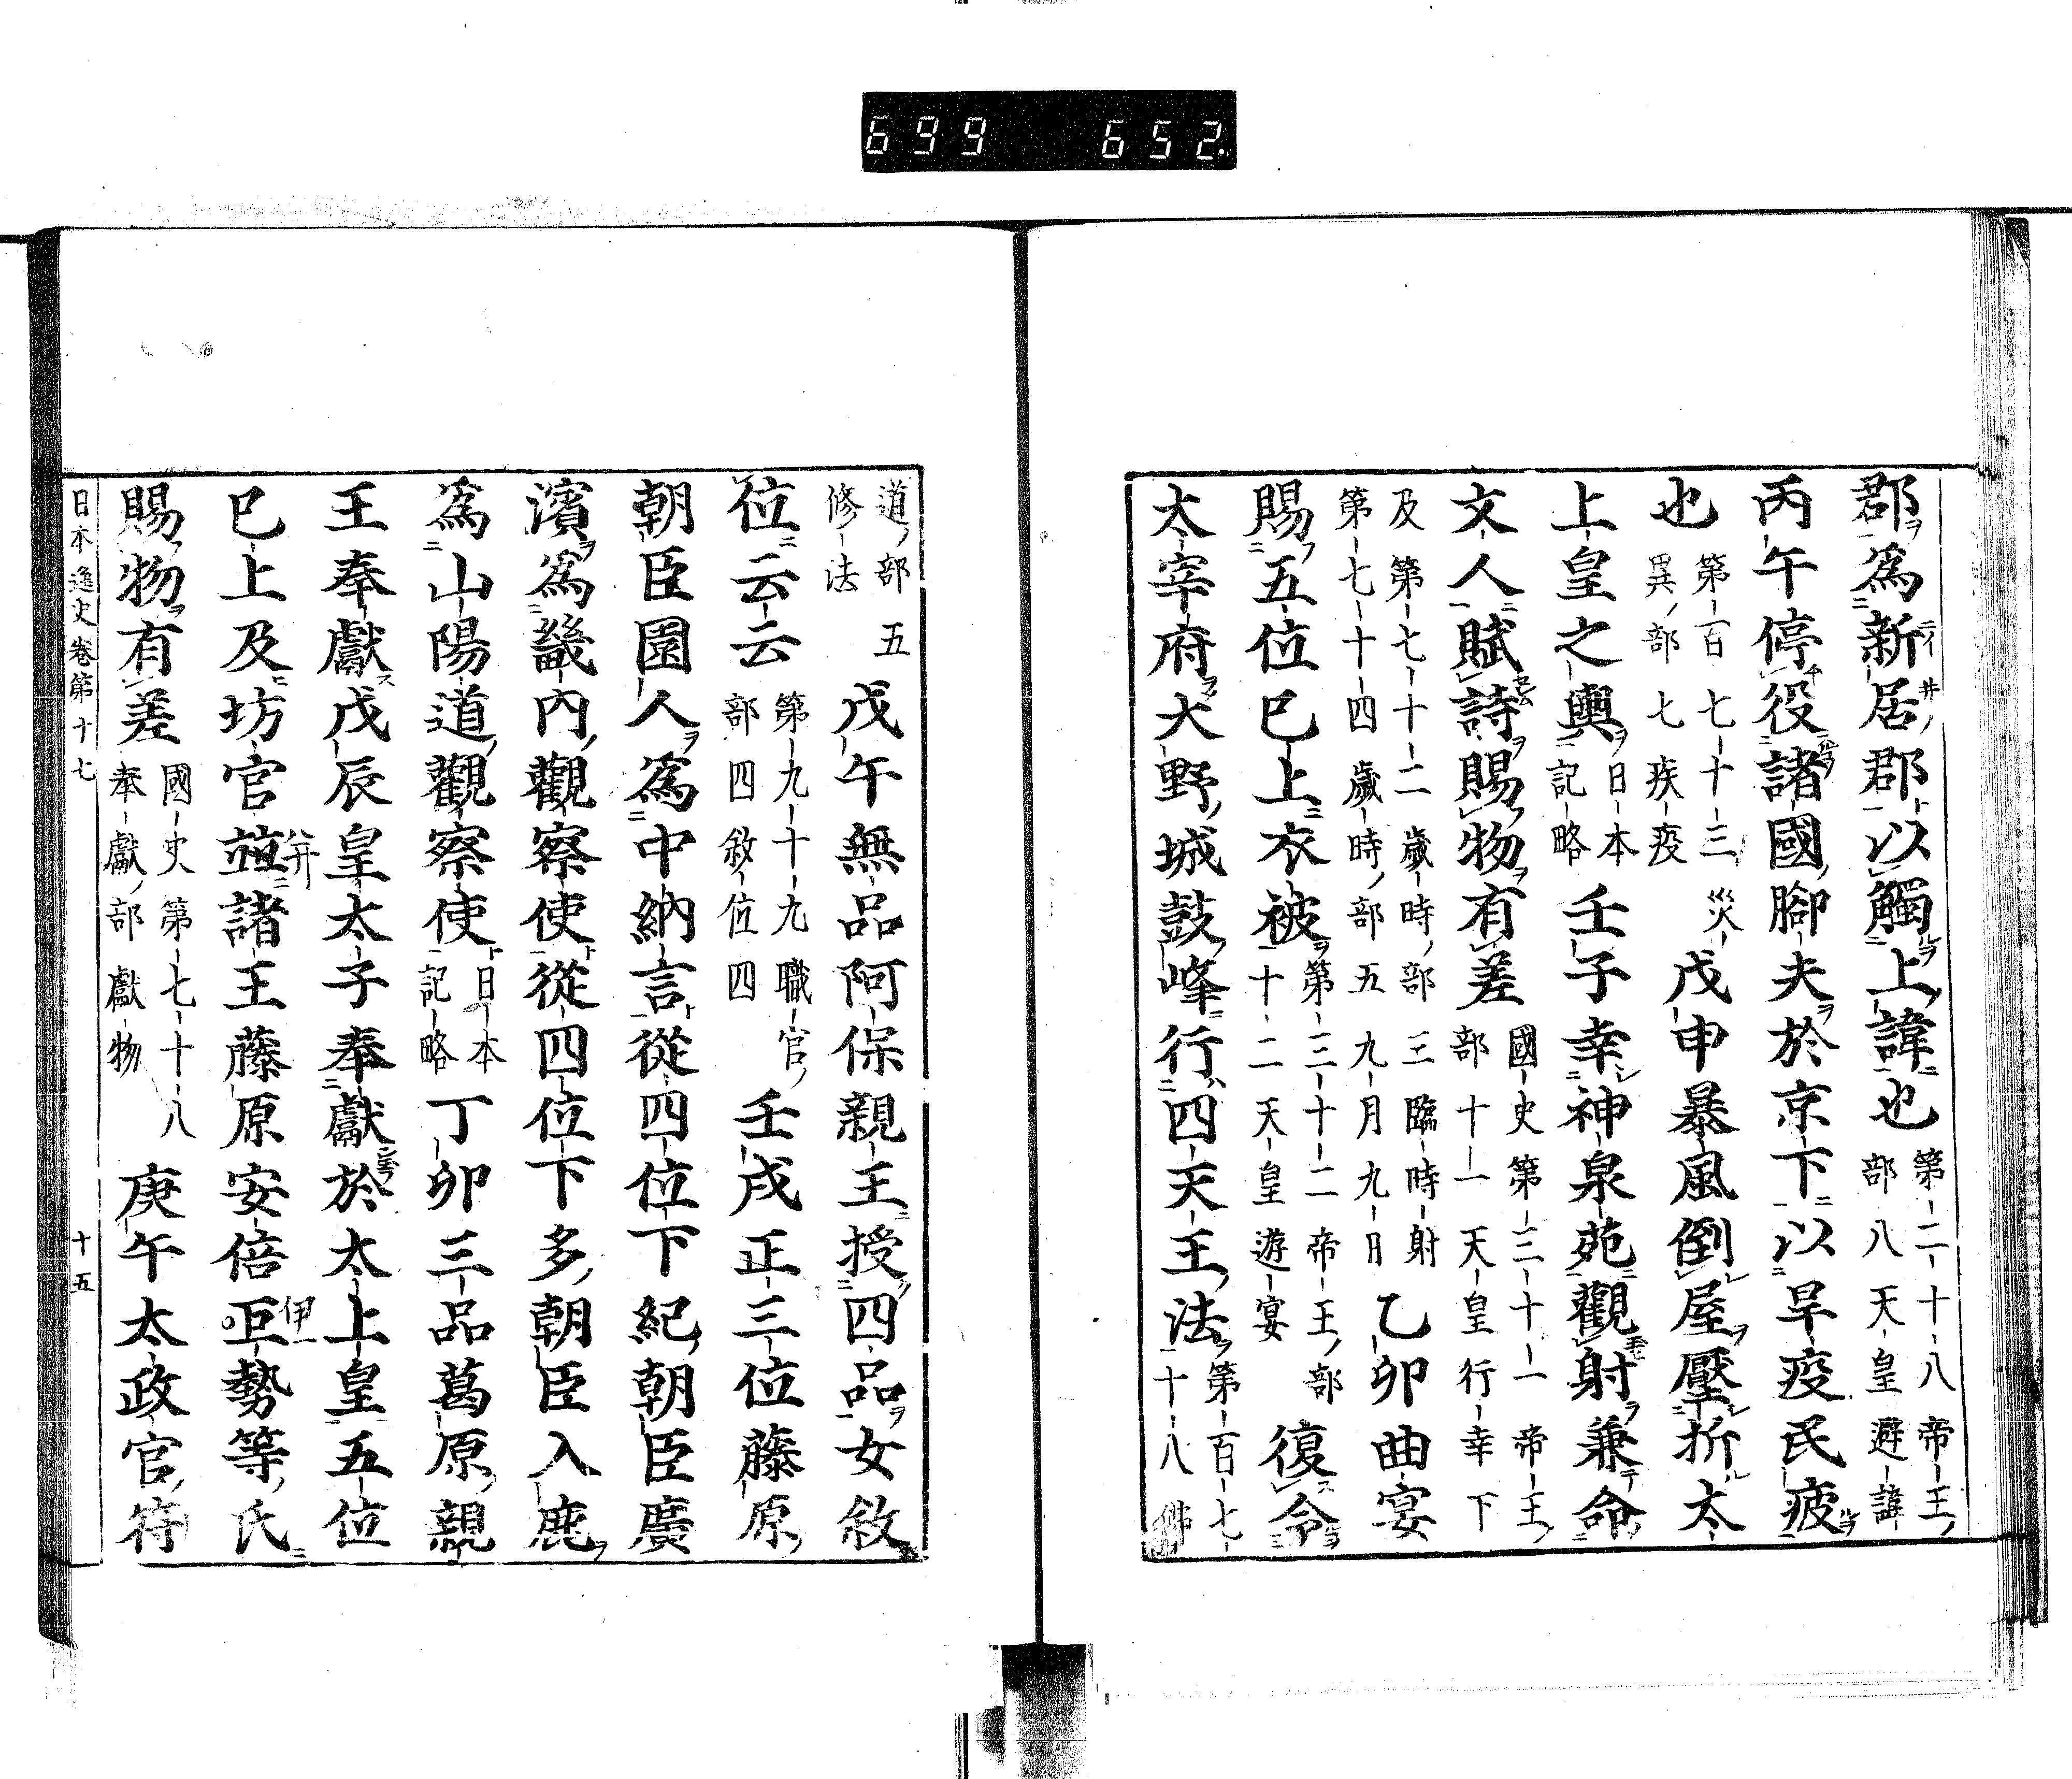 699 652
郡爲新居郡以觸上諱也 第二十八帝王部八天皇避諱
丙午停役諸國脚夫於京下以旱疫民疲
也 第百七十三災異部七疾疫 戊申暴風倒屋壓折太
上皇之輿 日本記略 壬子幸神泉苑觀射兼命
文人賦詩賜物有差 國史第三十一帝王部十一天皇行幸下
及第七十二歳時部三臨時射第七十四歳時部五九月九日 乙卯曲宴
賜五位巳上衣被 第三十二帝王部十二天皇遊宴 復令
太宰府大野城鼓峰行四天王法 第百七十八佛
道部五修法 戊午無品阿保親王授四品女敘
位云云 第九十九職官部四敘位四 壬戌正三位藤原
朝臣園人爲中納言從四位下紀朝臣廣
濱爲畿内觀察使從四位下多朝臣入鹿
爲山陽道觀察使 日本記略 丁卯三品葛原親
王奉獻戊辰皇太子奉獻於太上皇五位
巳上及坊官並諸王藤原安倍巨勢等氏
賜物有差 國史第七十八奉獻部獻物 庚午太政官符
日本逸史卷第十七 十五